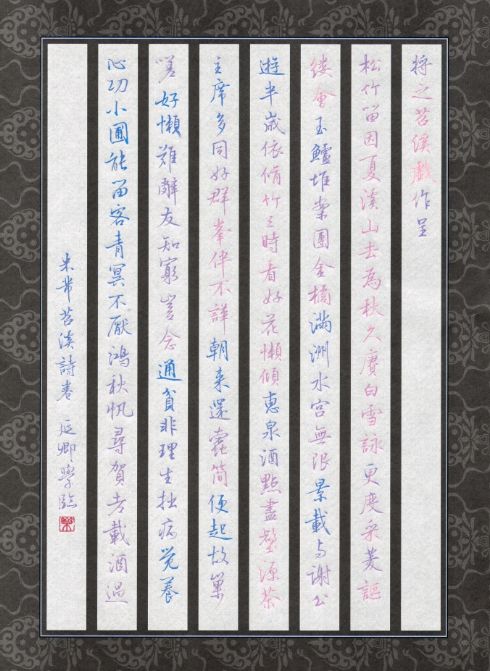 将之苕溪戲作呈
松竹留因夏溪山去為秋久賡白雪詠更度采菱謳
縷會玉鱸堆案團金橘滿洲水宮無限景載与謝公
遊半歲依脩竹三時看好花懶傾惠泉酒點盡壑源茶
主席多同好群峯伴不譁朝来還蠹簡便起故巢
嗟好懶難辭友知窮豈念通貧非理生拙病覺養
心功小圃能留客青冥不厭鴻秋帆尋賀老載酒過
米芾苕溪詩卷 延卿學臨